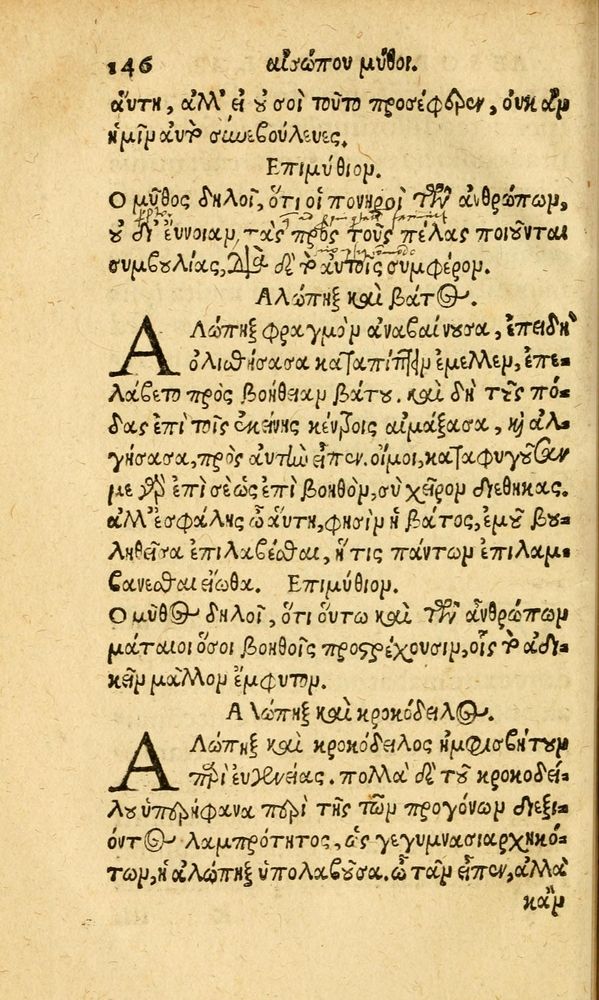 146 αἰσώπου μῦθοι.
αὕτη, ἀλλ' εἰ οὐ σοὶ τοῦτο προσέφερεν, οὐκ ἂν
ἡμῖν αὐτὸ συνεβούλευες.
Επιμύθιον.
Ο μῦθος δηλοῖ, ὅτι οἱ πονηροὶ τῶν ἀνθρώπων,
οὐ δι' εὔνοιαν τὰς πρὸς τοὺς πέλας ποιοῦνται
συμβουλίας, διὰ δὲ τὸ αὐτοῖς συμφέρον.
Αλώπηξ καὶ βάτος.
ΑΛώπηξ φραγμὸν ἀναβαίνουσα, ἐπειδὴ
ὀλισθήσασα καταπίπτειν ἔμελλεν, ἐπε-
λάβετο πρὸς βοήθειαν βάτου. καὶ δὴ τοὺς πό-
δας ἐπὶ τοῖς ἐκείνης κέντροις αἱμάξασα, καὶ ἀλ-
γήσασα, πρὸς αὐτὴν εἶπεν. οἴμοι, καταφυγοῦσαν
με γὰρ ἐπὶ σὲ ὡς ἐπὶ βοηθὸν, σὺ χεῖρον διέθηκας.
ἀλλ' ἐσφάλης ὦ αὕτη, φησὶν ἡ βάτος, ἐμοῦ βου-
ληθεῖσα ἐπιλαβέσθαι, ἥτις πάντων ἐπιλαμ-
βάνεσθαι εἴωθα. Επιμύθιον.
Ο μῦθος δηλοῖ, ὅτι οὕτω καὶ τῶν ἀνθρώπων
μάταιοι ὅσοι βοηθοῖς προστρέχουσιν, οἷς τὸ ἀδι-
κεῖν μᾶλλον ἔμφυτον.
Αλώπηξ καὶ κροκόδειλος.
ΑΛώπηξ καὶ κροκόδειλος ἠμφισβήτουν
περὶ εὐγενείας. πολλὰ δὲ τοῦ κροκοδεί-
λου ὑπερήφανα περὶ τῆς τῶν προγόνων διεξι-
όντος λαμπρότητος, ὡς γεγυμνασιαρχηκό-
των, ἡ ἀλώπηξ ὑπολαβοῦσα. ὦ τᾶν εἶπεν, ἀλλὰ
κἂν